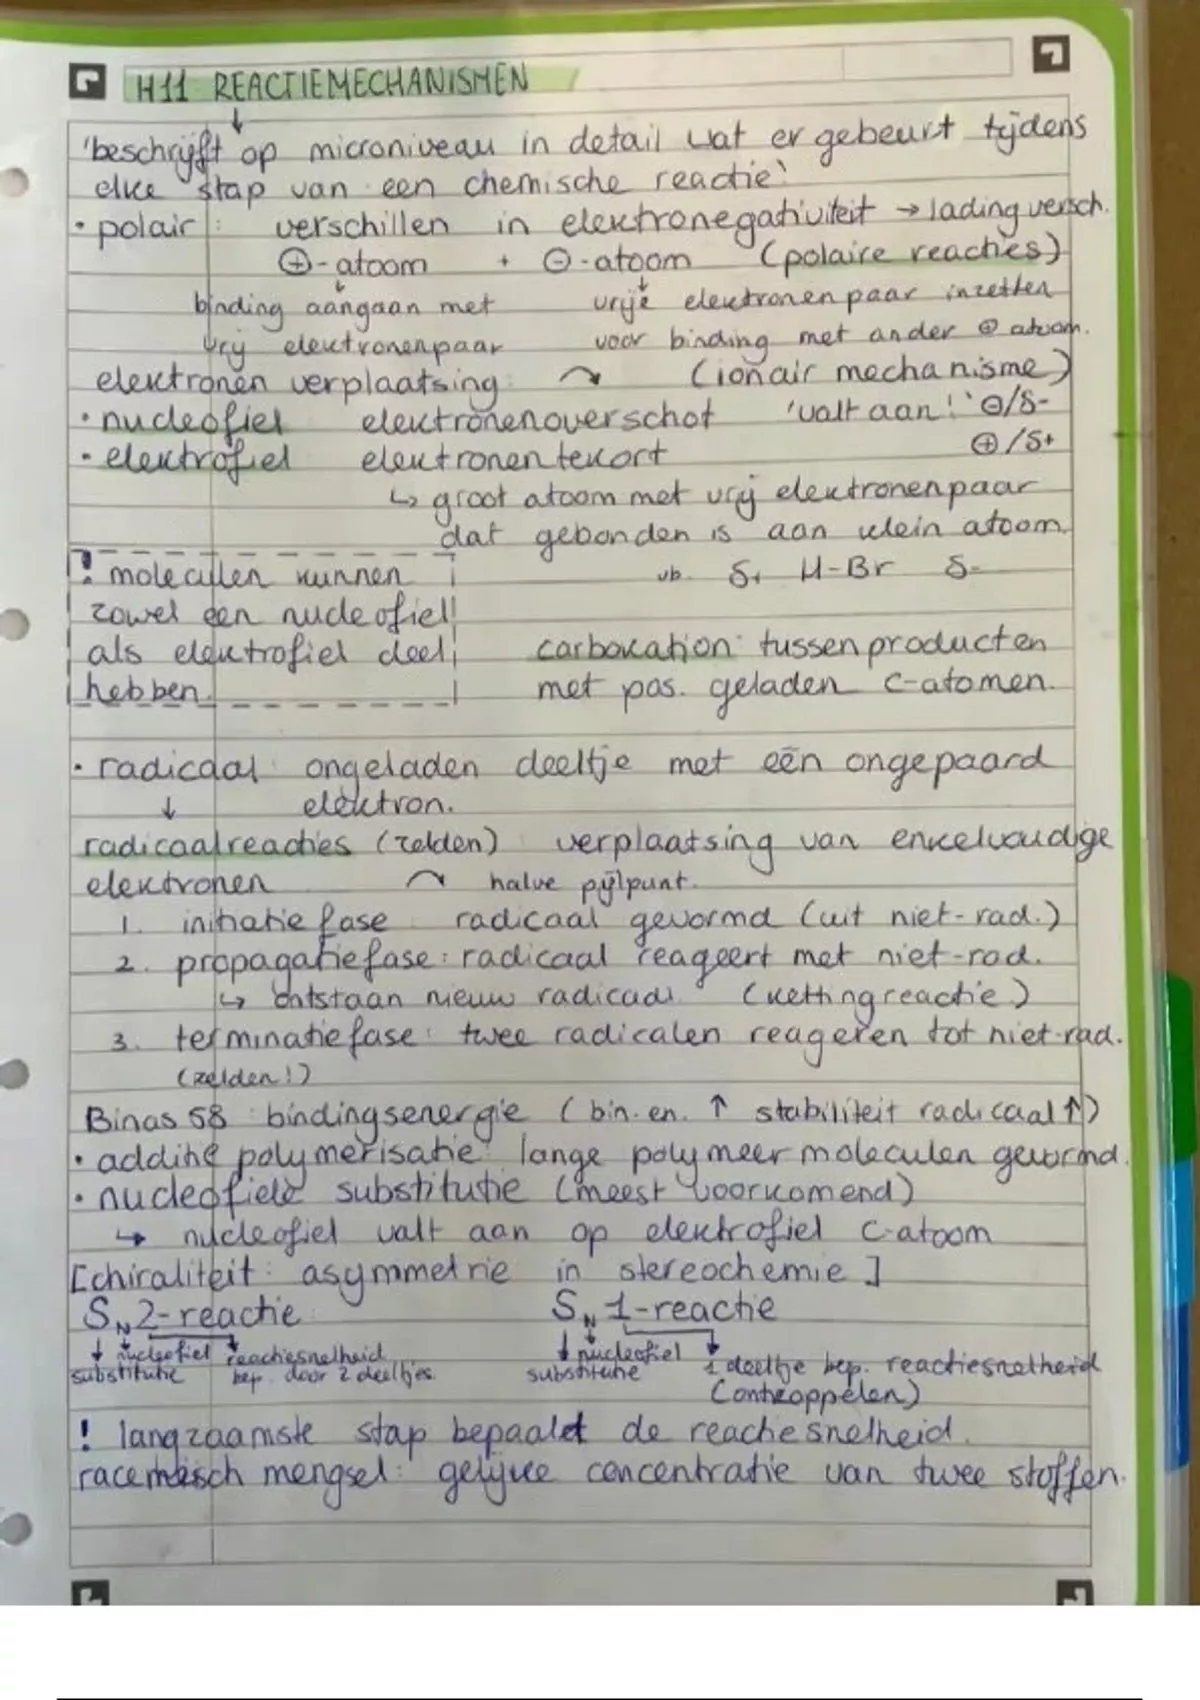 H11 REACTIEMECHANISMEN
↓
'beschrijft op microniveau in detail wat er gebeurt tijdens
elke stap van een chemische reactie'
• polair: verschillen in elektronegativiteit → lading versch.
⊕-atoom + ⊖-atoom (polaire reacties)
binding aangaan met vrije elektronenpaar inzetten
vrij elektronenpaar voor binding met ander ⊕ atoom.
elektronen verplaatsing: ↷ (ionair mechanisme)
• nucleofiel elektronenoverschot 'valt aan!' ⊖/δ-
• elektrofiel elektronentekort ⊕/δ+
↳ groot atoom met vrij elektronenpaar
dat gebonden is aan klein atoom.
! moleculen kunnen vb. δ+ H-Br δ-
zowel een nucleofiel
als elektrofiel deel carbokation: tussenproducten
hebben. met pos. geladen C-atomen.
• radicaal: ongeladen deeltje met één ongepaard
↓ elektron.
radicaalreacties (zelden): verplaatsing van enkelvoudige
elektronen ↷ halve pijlpunt.
1. initiatiefase: radicaal gevormd (uit niet-rad.)
2. propagatiefase: radicaal reageert met niet-rad.
↳ ontstaan nieuw radicaal (kettingreactie)
3. terminatiefase: twee radicalen reageren tot niet-rad.
(zelden!)
Binas 58: bindingsenergie (bin. en. ↑ stabiliteit radicaal ↑)
• additie polymerisatie: lange polymeer moleculen gevormd.
• nucleofiele substitutie (meest voorkomend)
↳ nucleofiel valt aan op elektrofiel C-atoom
[chiraliteit: asymmetrie in stereochemie]
SN2-reactie: SN1-reactie
↓ nucleofiel reactiesnelheid ↓ nucleofiel 1 deeltje bep. reactiesnelheid
substitutie bep. door 2 deeltjes. substitutie (ontkoppelen)
! langzaamste stap bepaalt de reactiesnelheid.
racemisch mengsel: gelijke concentratie van twee stoffen.